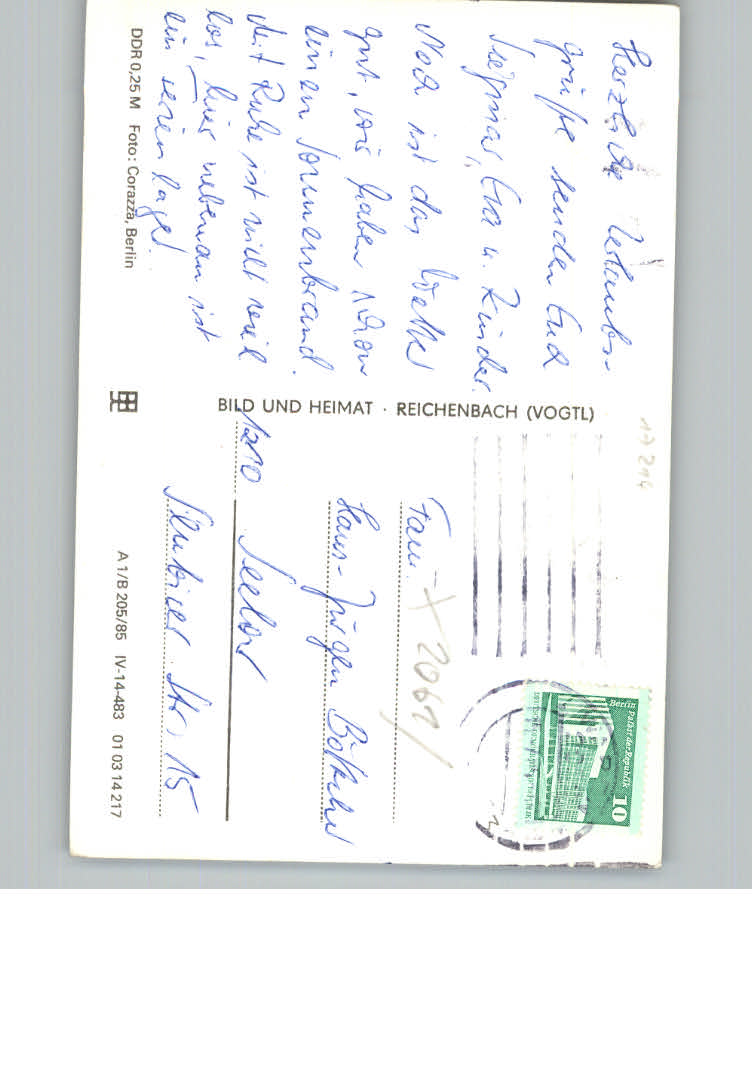 Herzliche Urlaubs-
grüße senden Euch
Siegmar, Eva u. Kinder.
Noch ist das Wetter
gut, wir haben schon
einen Sonnenbrand.
Mit Ruhe ist nicht viel
los, hier nebenan ist
ein Ferienlager.
DDR 0,25 M Foto: Corazza, Berlin
BILD UND HEIMAT · REICHENBACH (VOGTL)
Berlin Palast der Republik
10
Fam.
Hans-Jürgen Böttcher
1210 Seelow
Str. 15
A 1/B 205/85 IV-14-483 01 03 14 217
X 2061/
17 214